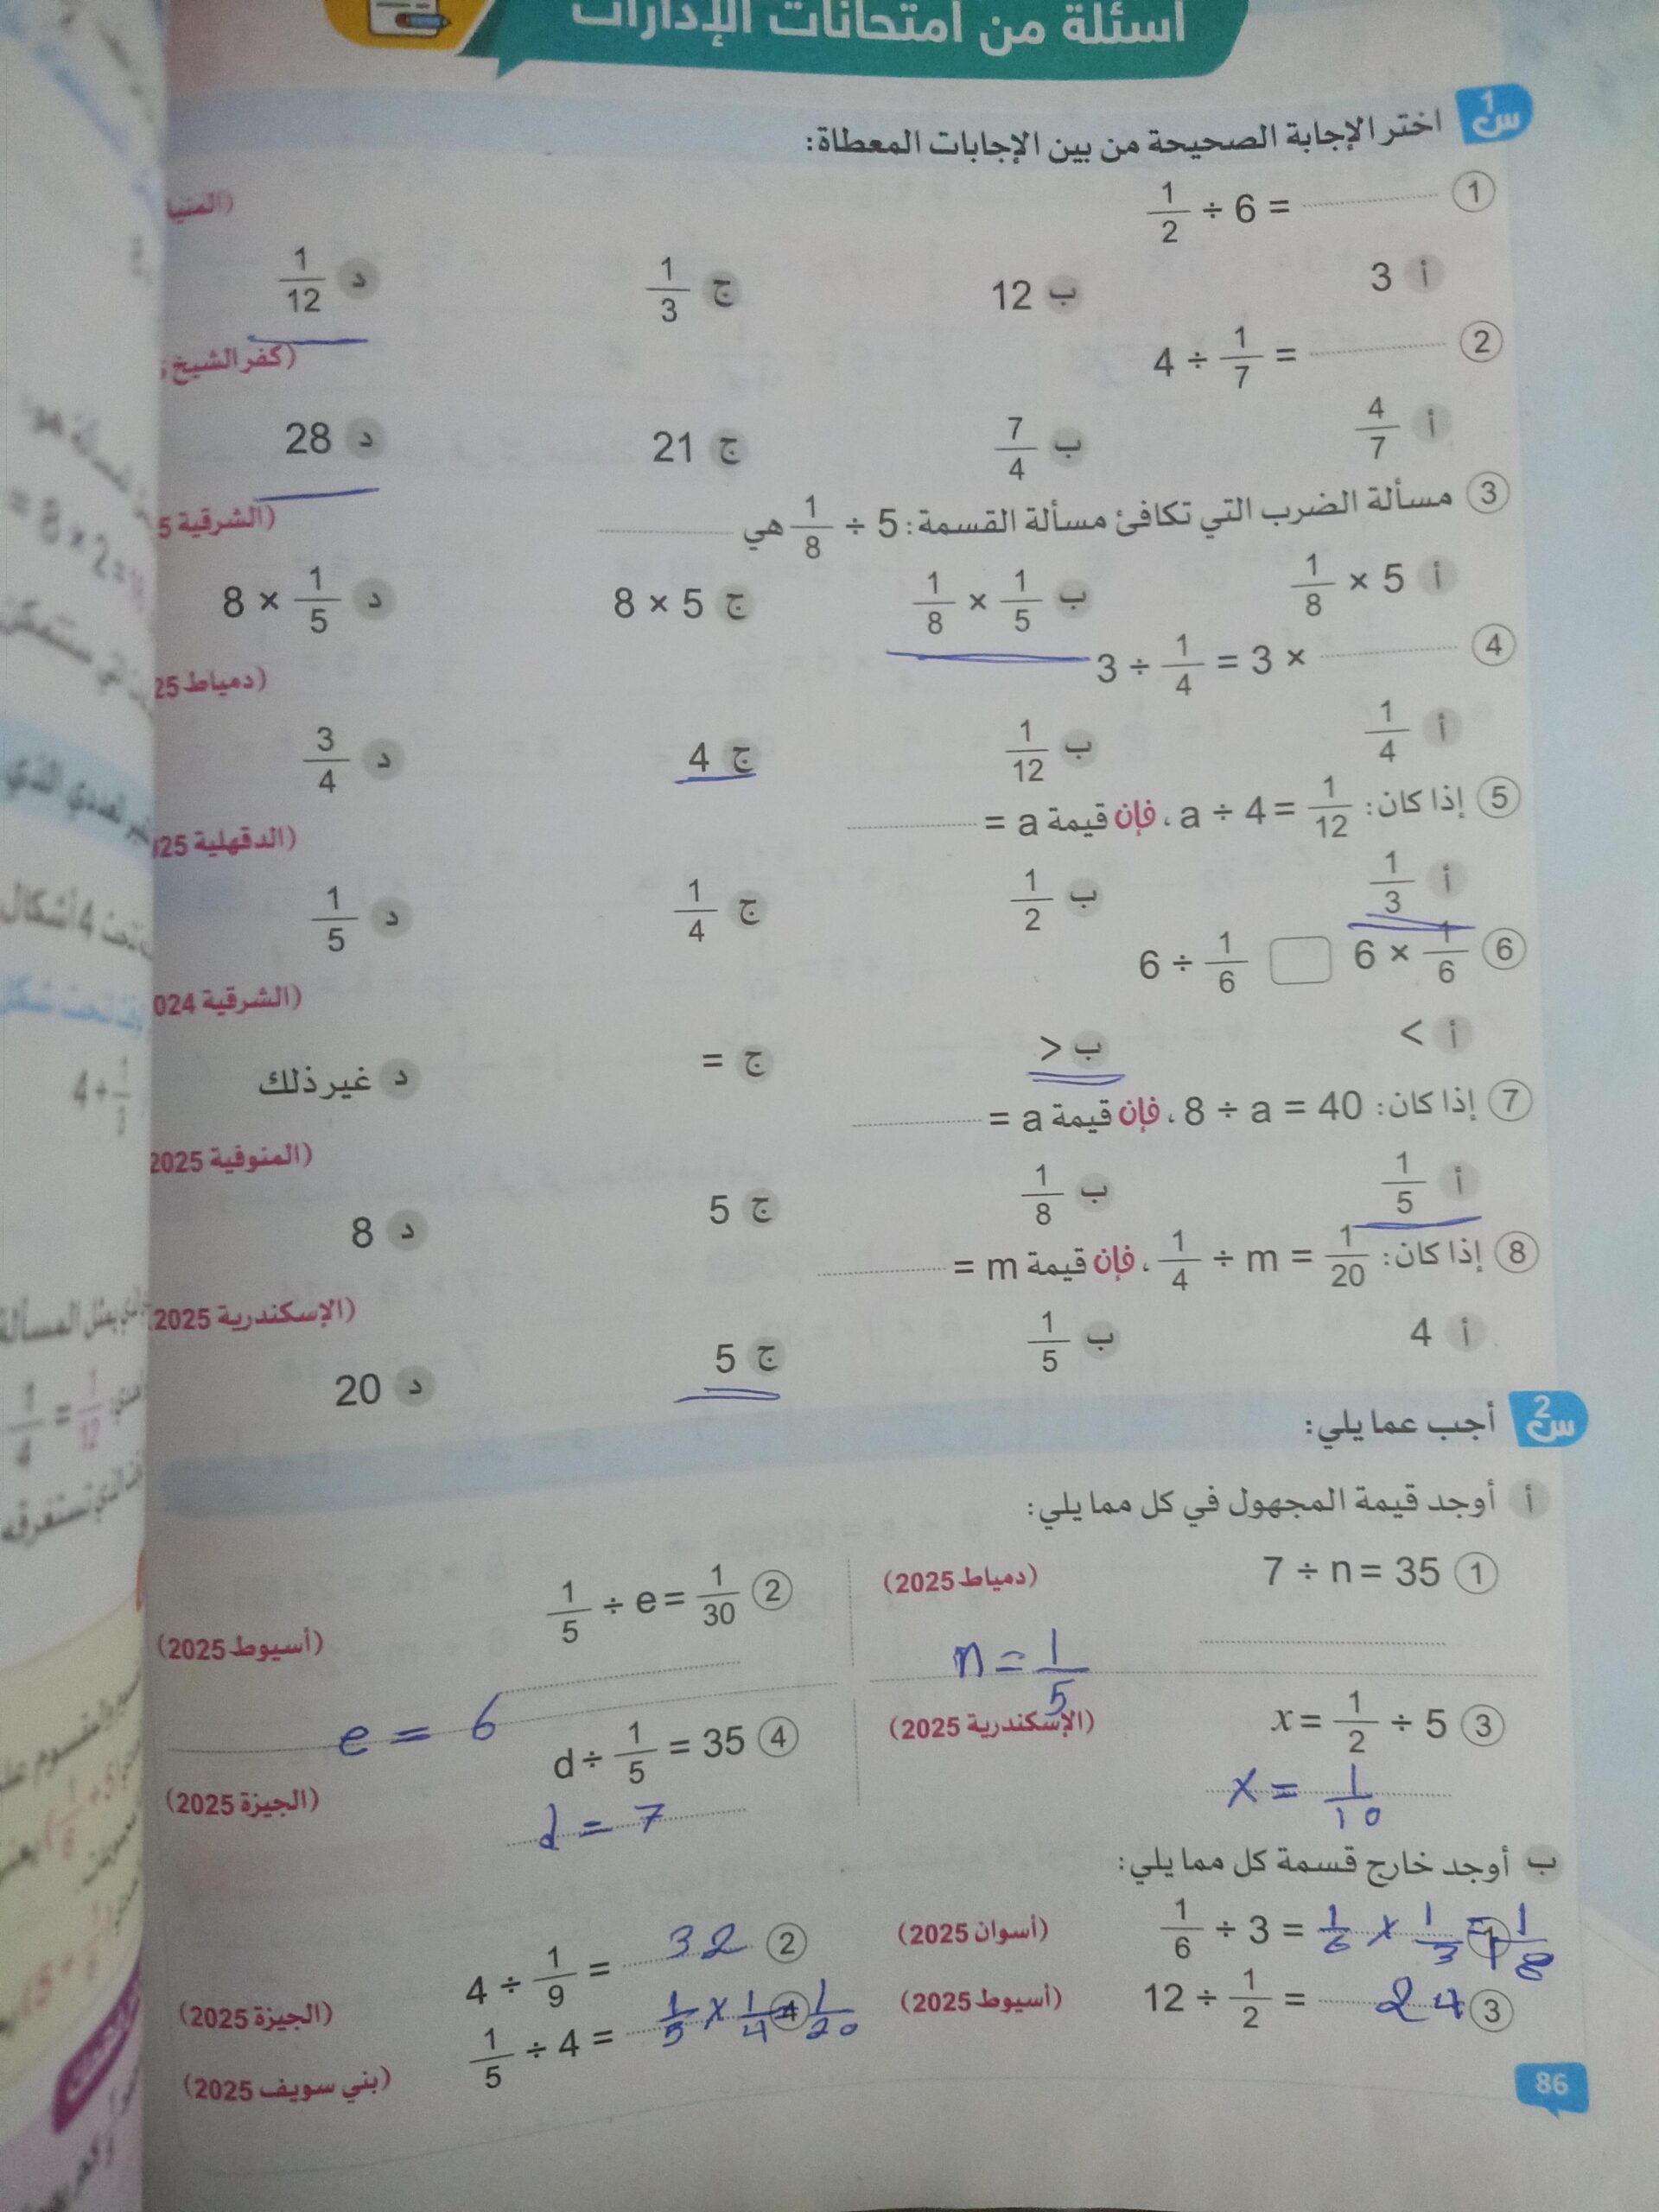 أسئلة من امتحانات الإدارات
س1 اختر الإجابة الصحيحة من بين الإجابات المعطاة:
① 1/2 ÷ 6 = ........ (المنيا
أ 3 ب 12 ج 1/3 د 1/12
② 4 ÷ 1/7 = ........ (كفر الشيخ
أ 4/7 ب 7/4 ج 21 د 28
③ مسألة الضرب التي تكافئ مسألة القسمة: 5 ÷ 1/8 هي ........ (الشرقية 5
أ 1/8 × 5 ب 1/8 × 1/5 ج 8 × 5 د 8 × 1/5
④ 3 ÷ 1/4 = 3 × ........ (دمياط 25
أ 1/4 ب 1/12 ج 4 د 3/4
⑤ إذا كان: a ÷ 4 = 1/12 ، فإن قيمة a = ........ (الدقهلية 025
أ 1/3 ب 1/2 ج 1/4 د 1/5
⑥ 6 ÷ 1/6 □ 6 × 1/6 (الشرقية 024
أ < ب > ج = د غير ذلك
⑦ إذا كان: 8 ÷ a = 40 ، فإن قيمة a = ........ (المنوفية 2025
أ 1/5 ب 1/8 ج 5 د 8
⑧ إذا كان: 1/4 ÷ m = 1/20 ، فإن قيمة m = ........ (الإسكندرية 2025
أ 4 ب 1/5 ج 5 د 20
س2 أجب عما يلي:
أ أوجد قيمة المجهول في كل مما يلي:
① 7 ÷ n = 35 (دمياط 2025)
n = 1/5
② 1/5 ÷ e = 1/30 (أسيوط 2025)
e = 6
③ x = 1/2 ÷ 5 (الإسكندرية 2025)
x = 1/10
④ d ÷ 1/5 = 35 (الجيزة 2025)
d = 7
ب أوجد خارج قسمة كل مما يلي:
① 1/6 ÷ 3 = 1/6 × 1/3 = 1/18 (أسوان 2025)
② 4 ÷ 1/9 = 32 (الجيزة 2025)
③ 12 ÷ 1/2 = 24 (أسيوط 2025)
④ 1/5 ÷ 4 = 1/5 × 1/4 = 1/20 (بني سويف 2025)
86